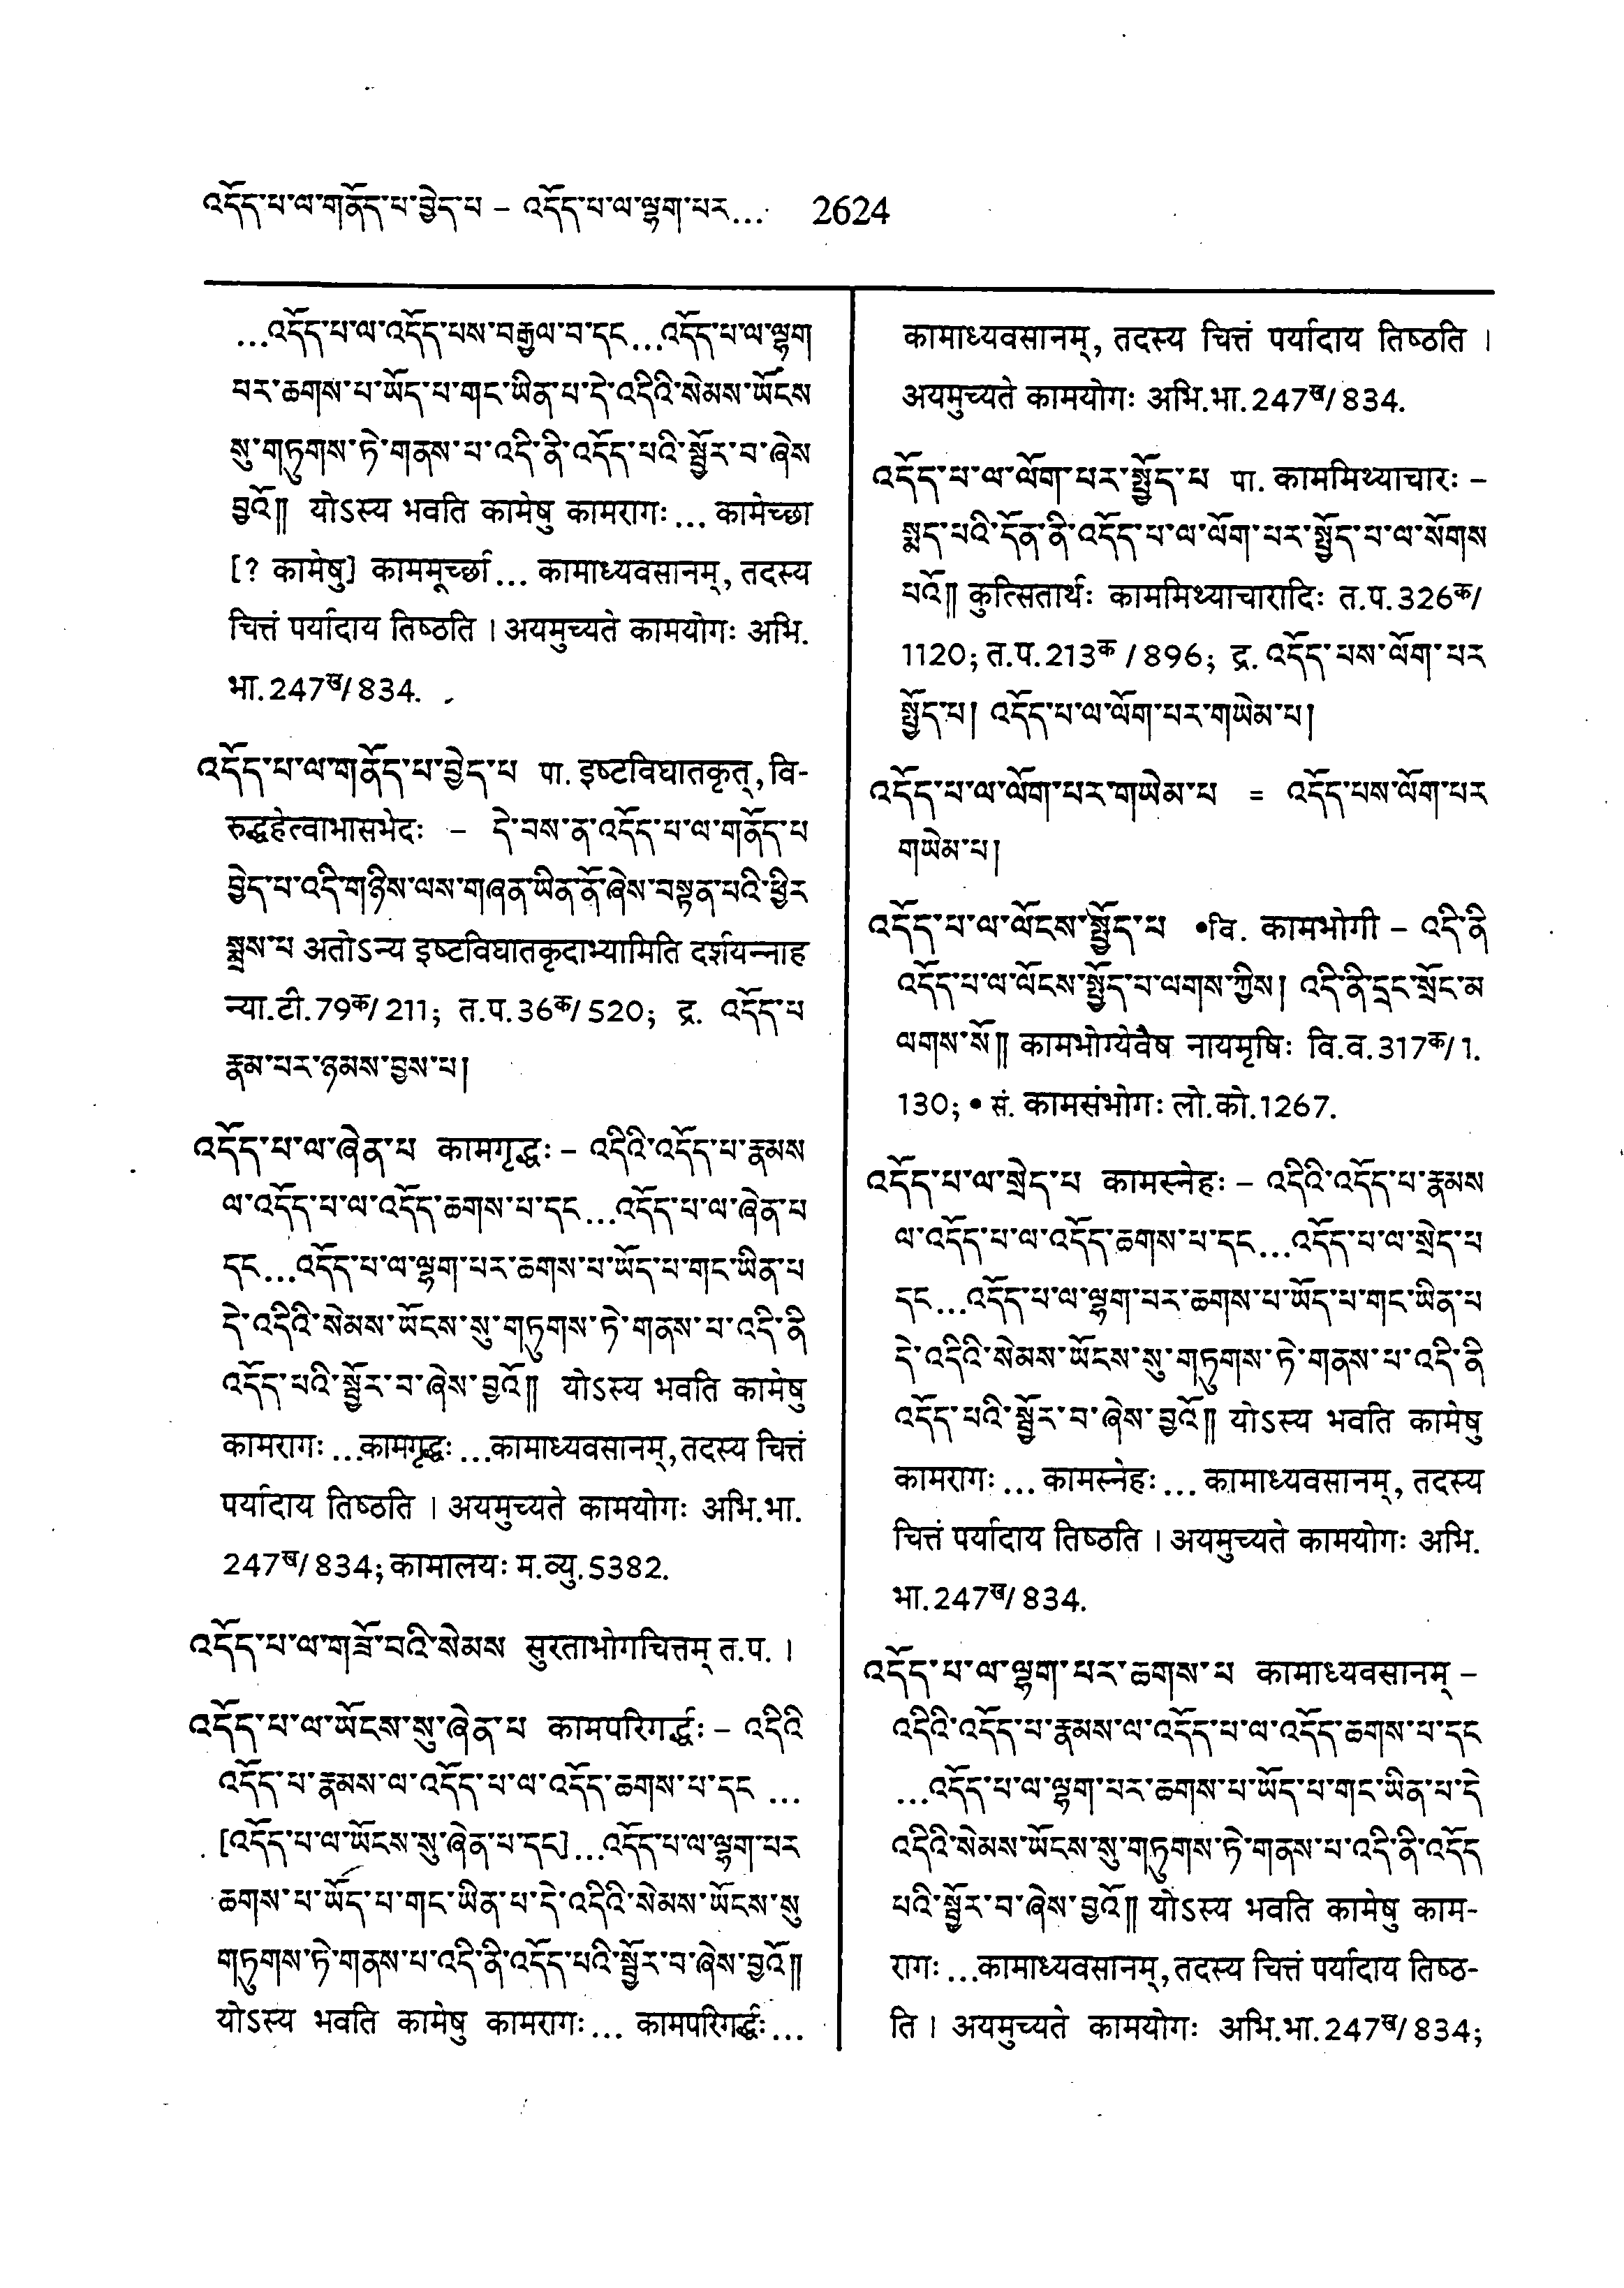 འདོད་པ་ལ་གནོད་པ་བྱེད་པ – འདོད་པ་ལ་ལྷག་པར... 2624
...འདོད་པ་ལ་འདོད་པས་བརྒྱལ་བ་དང...འདོད་པ་ལ་ལྷག
པར་ཆགས་པ་ཡོད་པ་གང་ཡིན་པ་དེ་འདིའི་སེམས་ཡོངས
སུ་གཏུགས་ཏེ་གནས་པ་འདི་ནི་འདོད་པའི་སྦྱོར་བ་ཞེས
བྱའོ།། योऽस्य भवति कामेषु कामरागः... कामेच्छा
[? कामेषु] काममूर्च्छा... कामाध्यवसानम्, तदस्य
चित्तं पर्यादाय तिष्ठति । अयमुच्यते कामयोगः अभि.
भा.247ख/834.
འདོད་པ་ལ་གནོད་པ་བྱེད་པ पा. इष्टविघातकृत्, वि-
रुद्धहेत्वाभासभेदः – དེ་བས་ན་འདོད་པ་ལ་གནོད་པ
བྱེད་པ་འདི་གཉིས་ལས་གཞན་ཡིན་ནོ་ཞེས་བསྟན་པའི་ཕྱིར
སྨྲས་པ अतोऽन्य इष्टविघातकृदाभ्यामिति दर्शयन्नाह
न्या.टी.79क/211; त.प.36क/520; द्र. འདོད་པ
རྣམ་པར་ཉམས་བྱས་པ།
འདོད་པ་ལ་ཞེན་པ कामगृद्धः – འདིའི་འདོད་པ་རྣམས
ལ་འདོད་པ་ལ་འདོད་ཆགས་པ་དང...འདོད་པ་ལ་ཞེན་པ
དང...འདོད་པ་ལ་ལྷག་པར་ཆགས་པ་ཡོད་པ་གང་ཡིན་པ
དེ་འདིའི་སེམས་ཡོངས་སུ་གཏུགས་ཏེ་གནས་པ་འདི་ནི
འདོད་པའི་སྦྱོར་བ་ཞེས་བྱའོ།། योऽस्य भवति कामेषु
कामरागः...कामगृद्धः...कामाध्यवसानम्, तदस्य चित्तं
पर्यादाय तिष्ठति । अयमुच्यते कामयोगः अभि.भा.
247ख/834; कामालयः म.व्यु.5382.
འདོད་པ་ལ་གཟོ་བའི་སེམས सुरताभोगचित्तम् त.प. ।
འདོད་པ་ལ་ཡོངས་སུ་ཞེན་པ कामपरिगर्द्धः – འདིའི
འདོད་པ་རྣམས་ལ་འདོད་པ་ལ་འདོད་ཆགས་པ་དང ...
[འདོད་པ་ལ་ཡོངས་སུ་ཞེན་པ་དང]...འདོད་པ་ལ་ལྷག་པར
ཆགས་པ་ཡོད་པ་གང་ཡིན་པ་དེ་འདིའི་སེམས་ཡོངས་སུ
གཏུགས་ཏེ་གནས་པ་འདི་ནི་འདོད་པའི་སྦྱོར་བ་ཞེས་བྱའོ།།
योऽस्य भवति कामेषु कामरागः... कामपरिगर्द्धः...
कामाध्यवसानम्, तदस्य चित्तं पर्यादाय तिष्ठति ।
अयमुच्यते कामयोगः अभि.भा.247ख/834.
འདོད་པ་ལ་ལོག་པར་སྤྱོད་པ पा. काममिथ्याचारः –
སྨད་པའི་དོན་ནི་འདོད་པ་ལ་ལོག་པར་སྤྱོད་པ་ལ་སོགས
པའོ།། कुत्सितार्थः काममिथ्याचारादिः त.प.326क/
1120; त.प.213क/896; द्र. འདོད་པས་ལོག་པར
སྤྱོད་པ། འདོད་པ་ལ་ལོག་པར་གཡེམ་པ།
འདོད་པ་ལ་ལོག་པར་གཡེམ་པ = འདོད་པས་ལོག་པར
གཡེམ་པ།
འདོད་པ་ལ་ལོངས་སྤྱོད་པ •वि. कामभोगी – འདི་ནི
འདོད་པ་ལ་ལོངས་སྤྱོད་པ་ལགས་ཀྱིས། འདི་ནི་དྲང་སྲོང་མ
ལགས་སོ།། कामभोग्येवैष नायमृषिः वि.व.317क/1.
130; • सं. कामसंभोगः लो.को.1267.
འདོད་པ་ལ་སྲེད་པ कामस्नेहः – འདིའི་འདོད་པ་རྣམས
ལ་འདོད་པ་ལ་འདོད་ཆགས་པ་དང...འདོད་པ་ལ་སྲེད་པ
དང...འདོད་པ་ལ་ལྷག་པར་ཆགས་པ་ཡོད་པ་གང་ཡིན་པ
དེ་འདིའི་སེམས་ཡོངས་སུ་གཏུགས་ཏེ་གནས་པ་འདི་ནི
འདོད་པའི་སྦྱོར་བ་ཞེས་བྱའོ།། योऽस्य भवति कामेषु
कामरागः... कामस्नेहः... कामाध्यवसानम्, तदस्य
चित्तं पर्यादाय तिष्ठति । अयमुच्यते कामयोगः अभि.
भा.247ख/834.
འདོད་པ་ལ་ལྷག་པར་ཆགས་པ कामाध्यवसानम् –
འདིའི་འདོད་པ་རྣམས་ལ་འདོད་པ་ལ་འདོད་ཆགས་པ་དང
...འདོད་པ་ལ་ལྷག་པར་ཆགས་པ་ཡོད་པ་གང་ཡིན་པ་དེ
འདིའི་སེམས་ཡོངས་སུ་གཏུགས་ཏེ་གནས་པ་འདི་ནི་འདོད
པའི་སྦྱོར་བ་ཞེས་བྱའོ།། योऽस्य भवति कामेषु काम-
रागः...कामाध्यवसानम्, तदस्य चित्तं पर्यादाय तिष्ठ-
ति । अयमुच्यते कामयोगः अभि.भा.247ख/834;